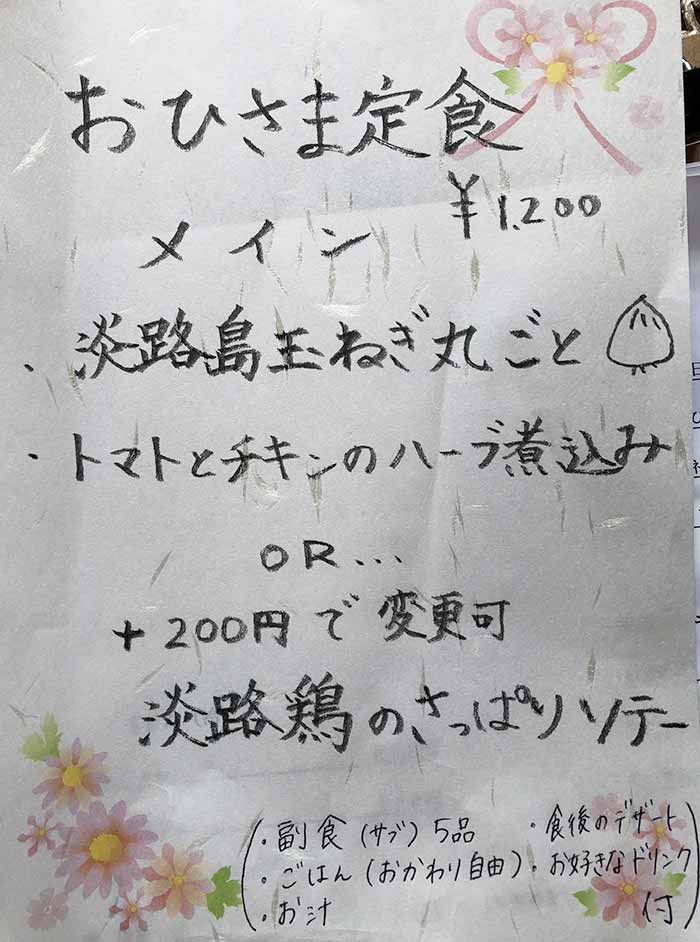 おひさま定食
¥1,200
メイン
・淡路島玉ねぎ丸ごと
・トマトとチキンのハーブ煮込み
OR...
+200円で変更可
淡路鶏のさっぱりソテー
(・副食(サブ)5品 ・食後のデザート
・ごはん(おかわり自由)・お好きなドリンク
・お汁 付)